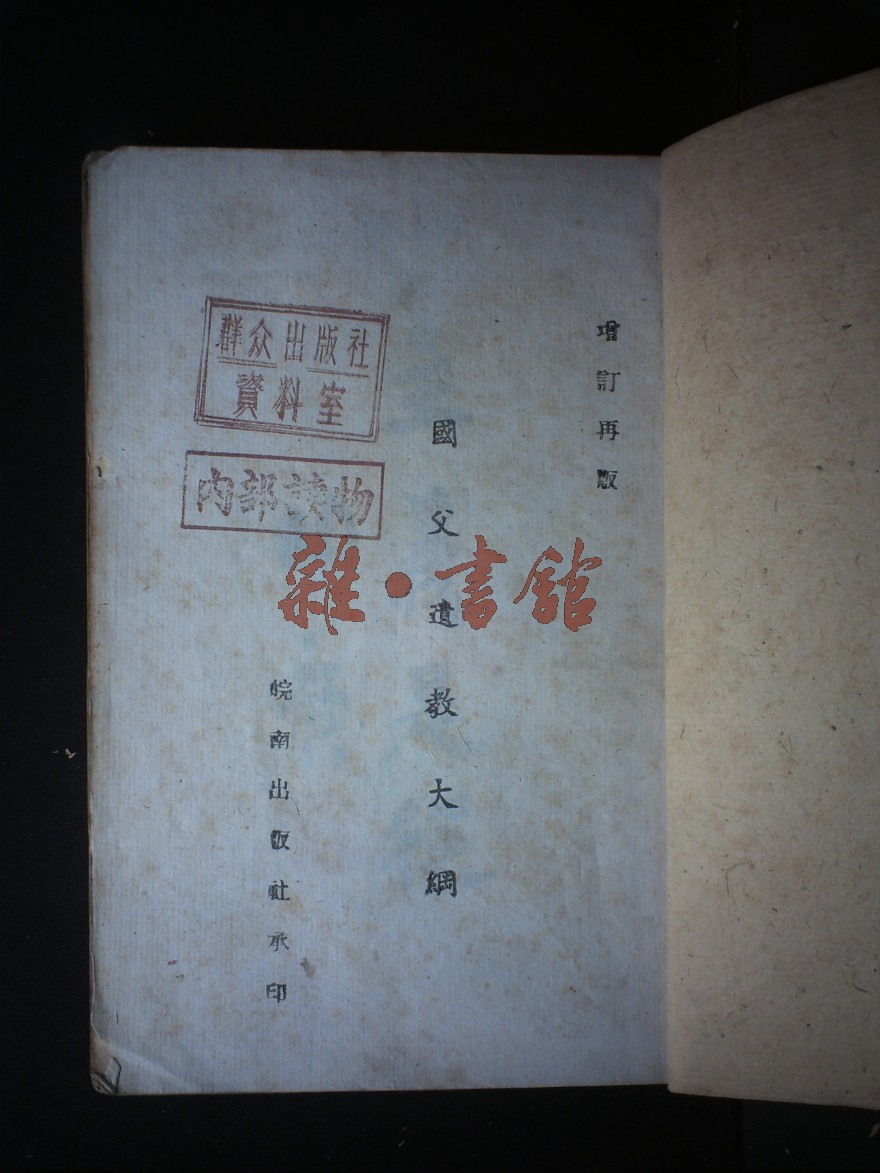 增訂再版
國父遺教大綱
皖南出版社承印
群众出版社
資料室
内部讀物
雜·書館